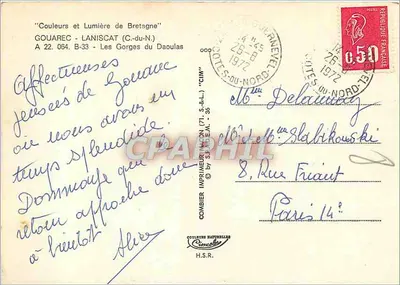 "Couleurs et Lumière de Bretagne"
GOUAREC - LANISCAT (C.-du-N.)
A 22. 084. B-33 - Les Gorges du Daoulas
Affectueuses
pensées de Gouarec
où nous avons un
temps splendide.
Dommage que le
retour approche donc
à bientôt Alice
COMBIER IMPRIMEUR MACON (71, S.-&-L.) "CIM"
COULEURS NATURELLES
Cimcolor
H.S.R.
14 H 45
26-8
1972
COTES-DU-NORD
0,50
Mme Delaunay
Mr et Mme Slabikowski
8, Rue Friant
Paris 14e
CPARHIL